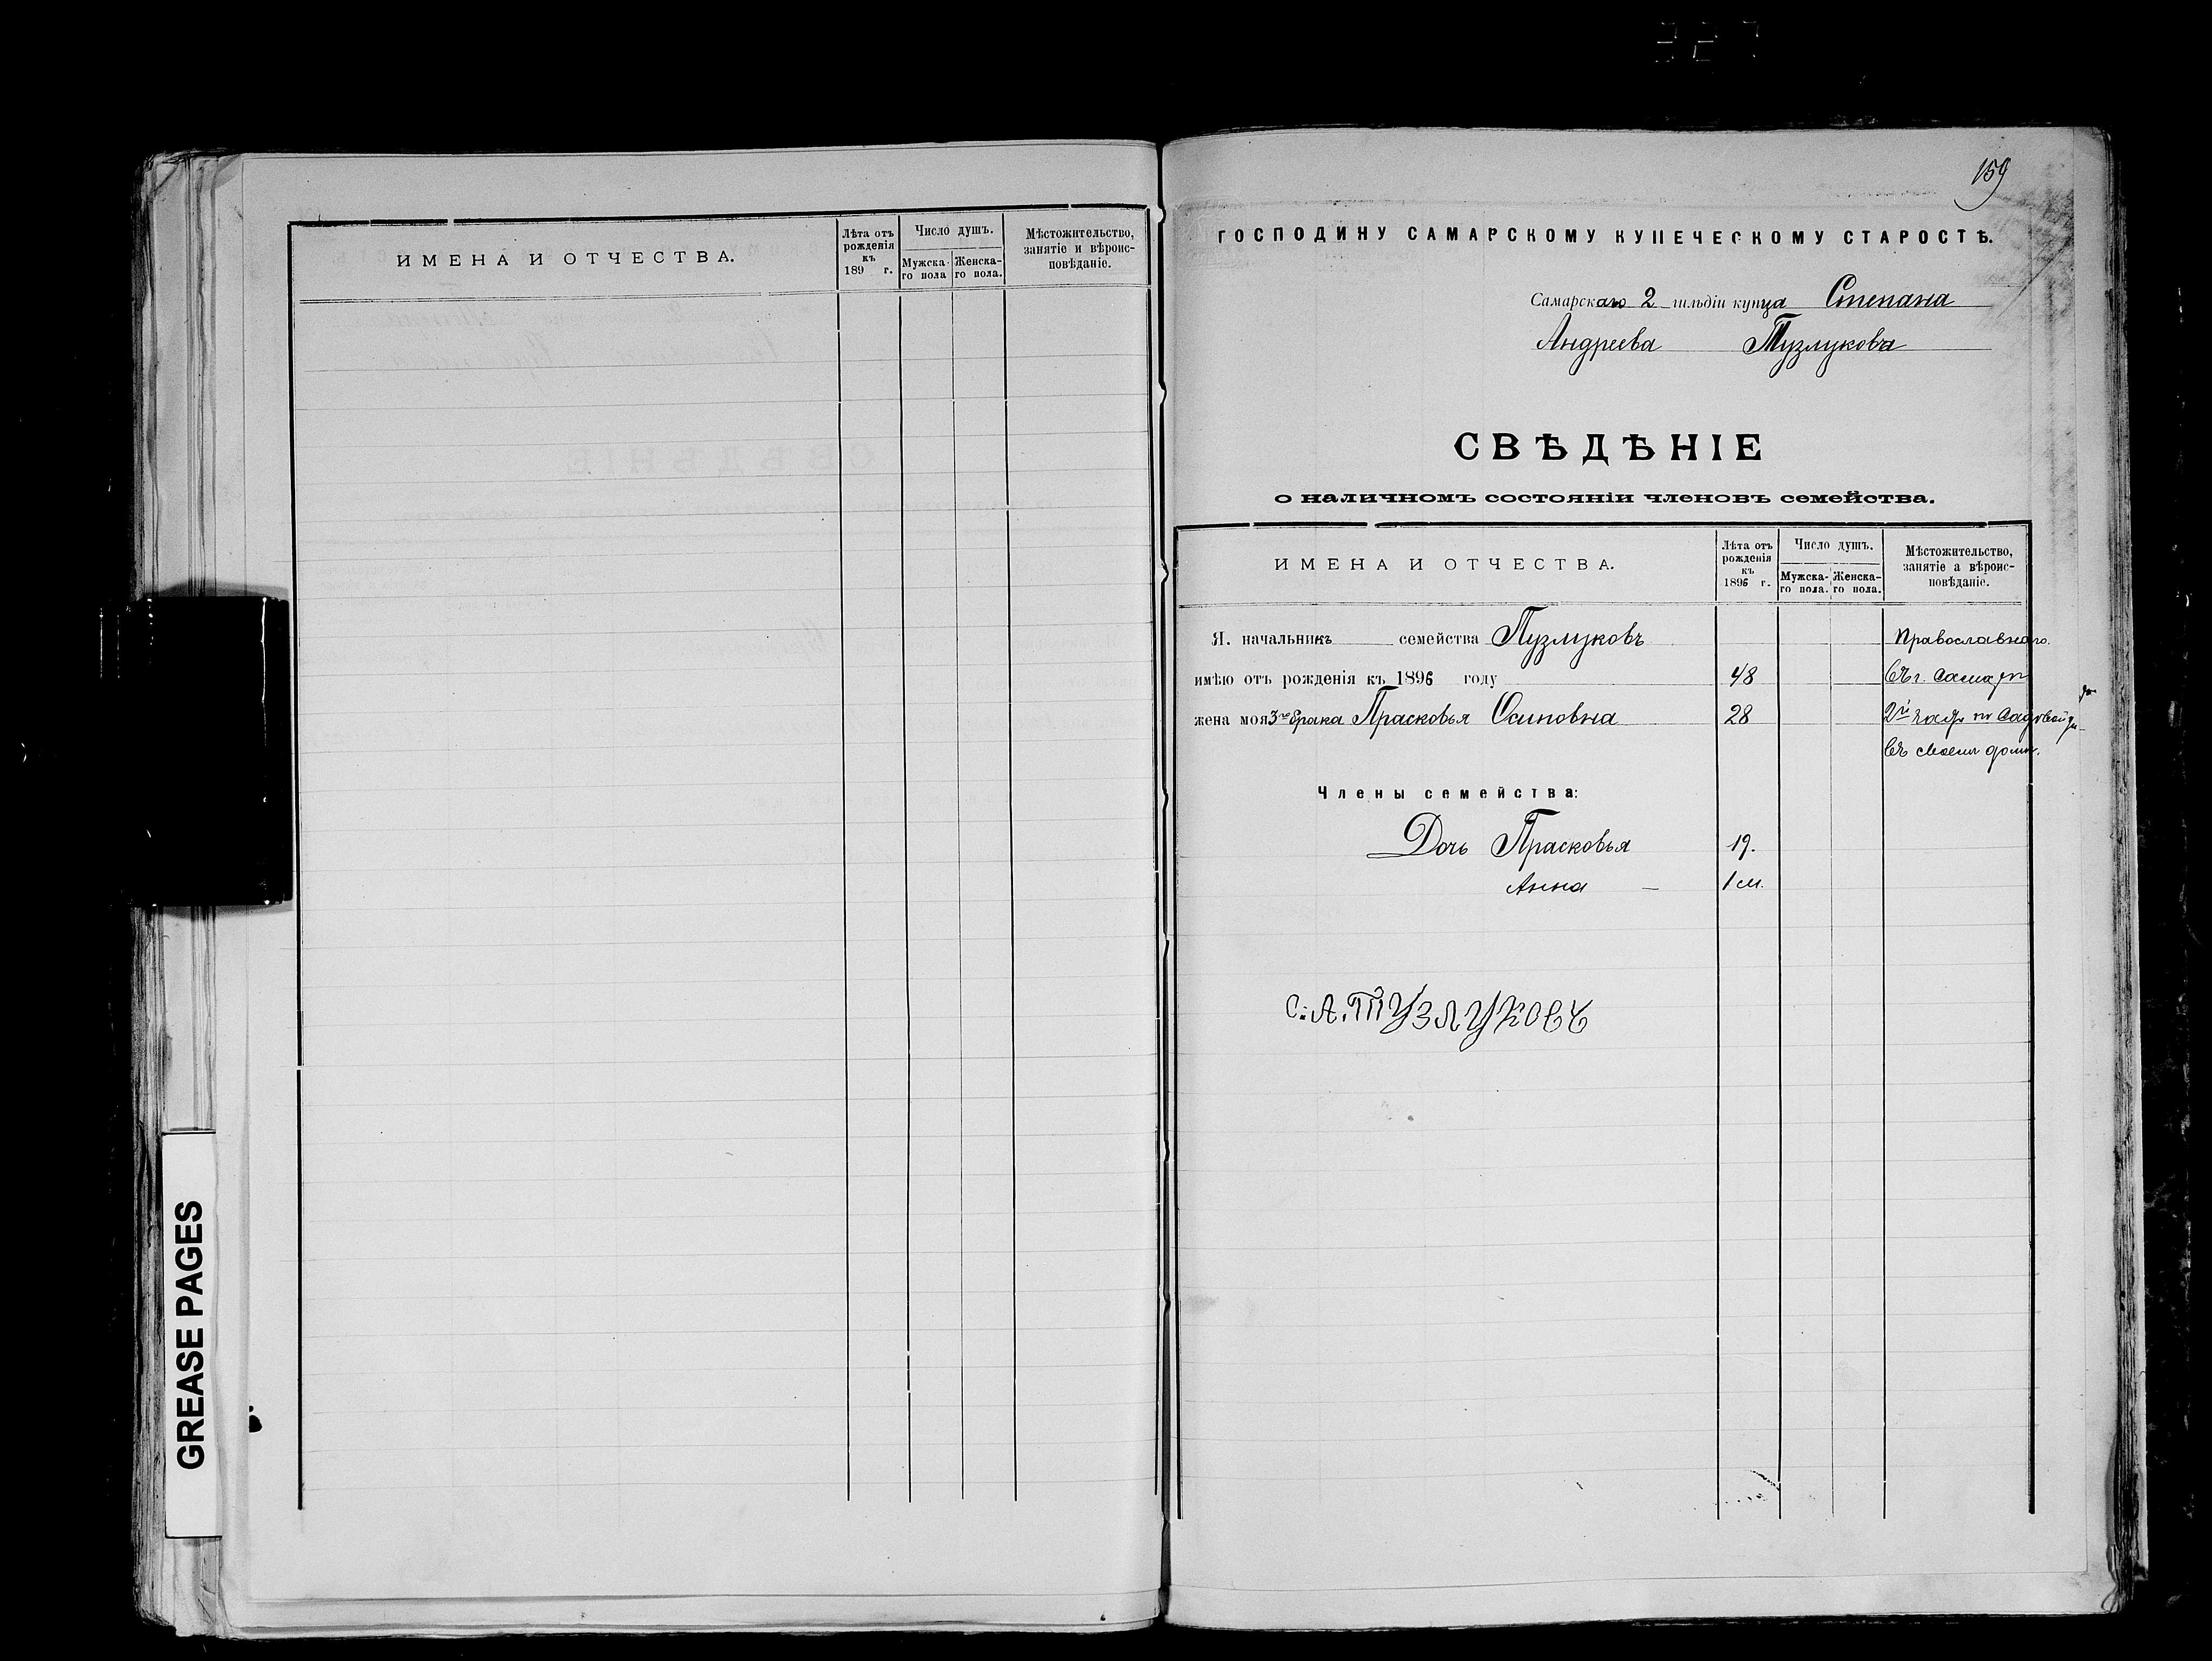 ИМЕНА И ОТЧЕСТВА.
Лѣта отъ рожденія къ 189 г.
Число душъ.
Мужска-го пола
Женска-го пола.
Мѣстожительство, занятіе и вѣроис-повѣданіе.
GREASE PAGES
159
ГОСПОДИНУ САМАРСКОМУ КУПЕЧЕСКОМУ СТАРОСТѢ.
Самарскаго 2 гильдіи купца Степана
Андреева Тузлукова
СВѢДѢНІЕ
о наличномъ состояніи членовъ семейства.
ИМЕНА И ОТЧЕСТВА.
Лѣта отъ рожденія къ 1896 г.
Число душъ.
Мужска-го пола.
Женска-го пола.
Мѣстожительство, занятіе а вѣроис-повѣданіе.
Я. начальникъ семейства Тузлуковъ Православнаго.
имѣю отъ рожденія къ 1896 году 48 Въ г. Самарѣ
жена моя 3го брака Прасковья Осиповна 28 2й части по Садовой
въ своем домѣ.
Члены семейства:
Дочь Прасковья 19.
Анна — 1 м.
С. А. Тузлуковъ